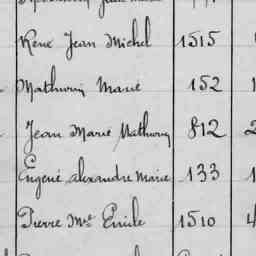 René Jean Michel 1515
Mathurin Marie 152 1
Jean Marie Mathurin 812 2
Eugène Alexandre Marie 133 1
Pierre Me Emile 1510 4